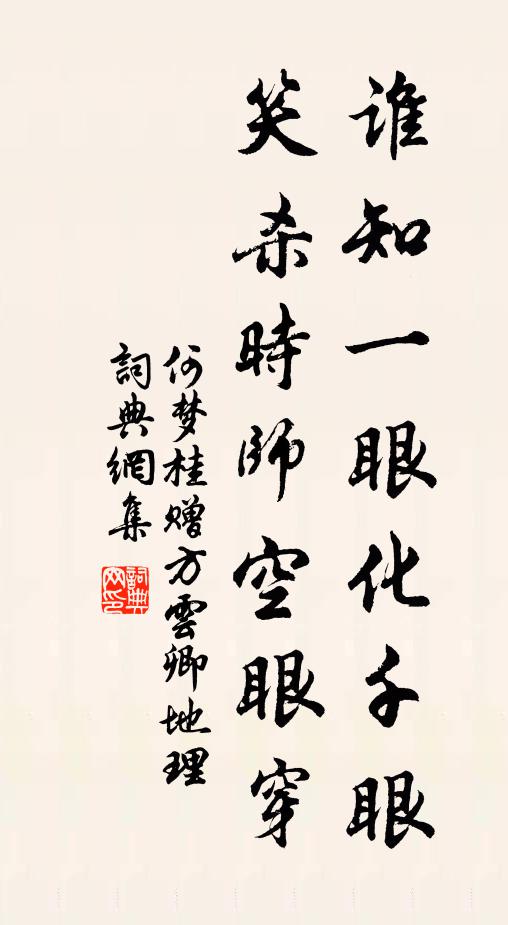 谁知一眼化千眼
笑杀時师空眼穿
何梦桂赠方雲卿地理
詞典網集
詞典網印